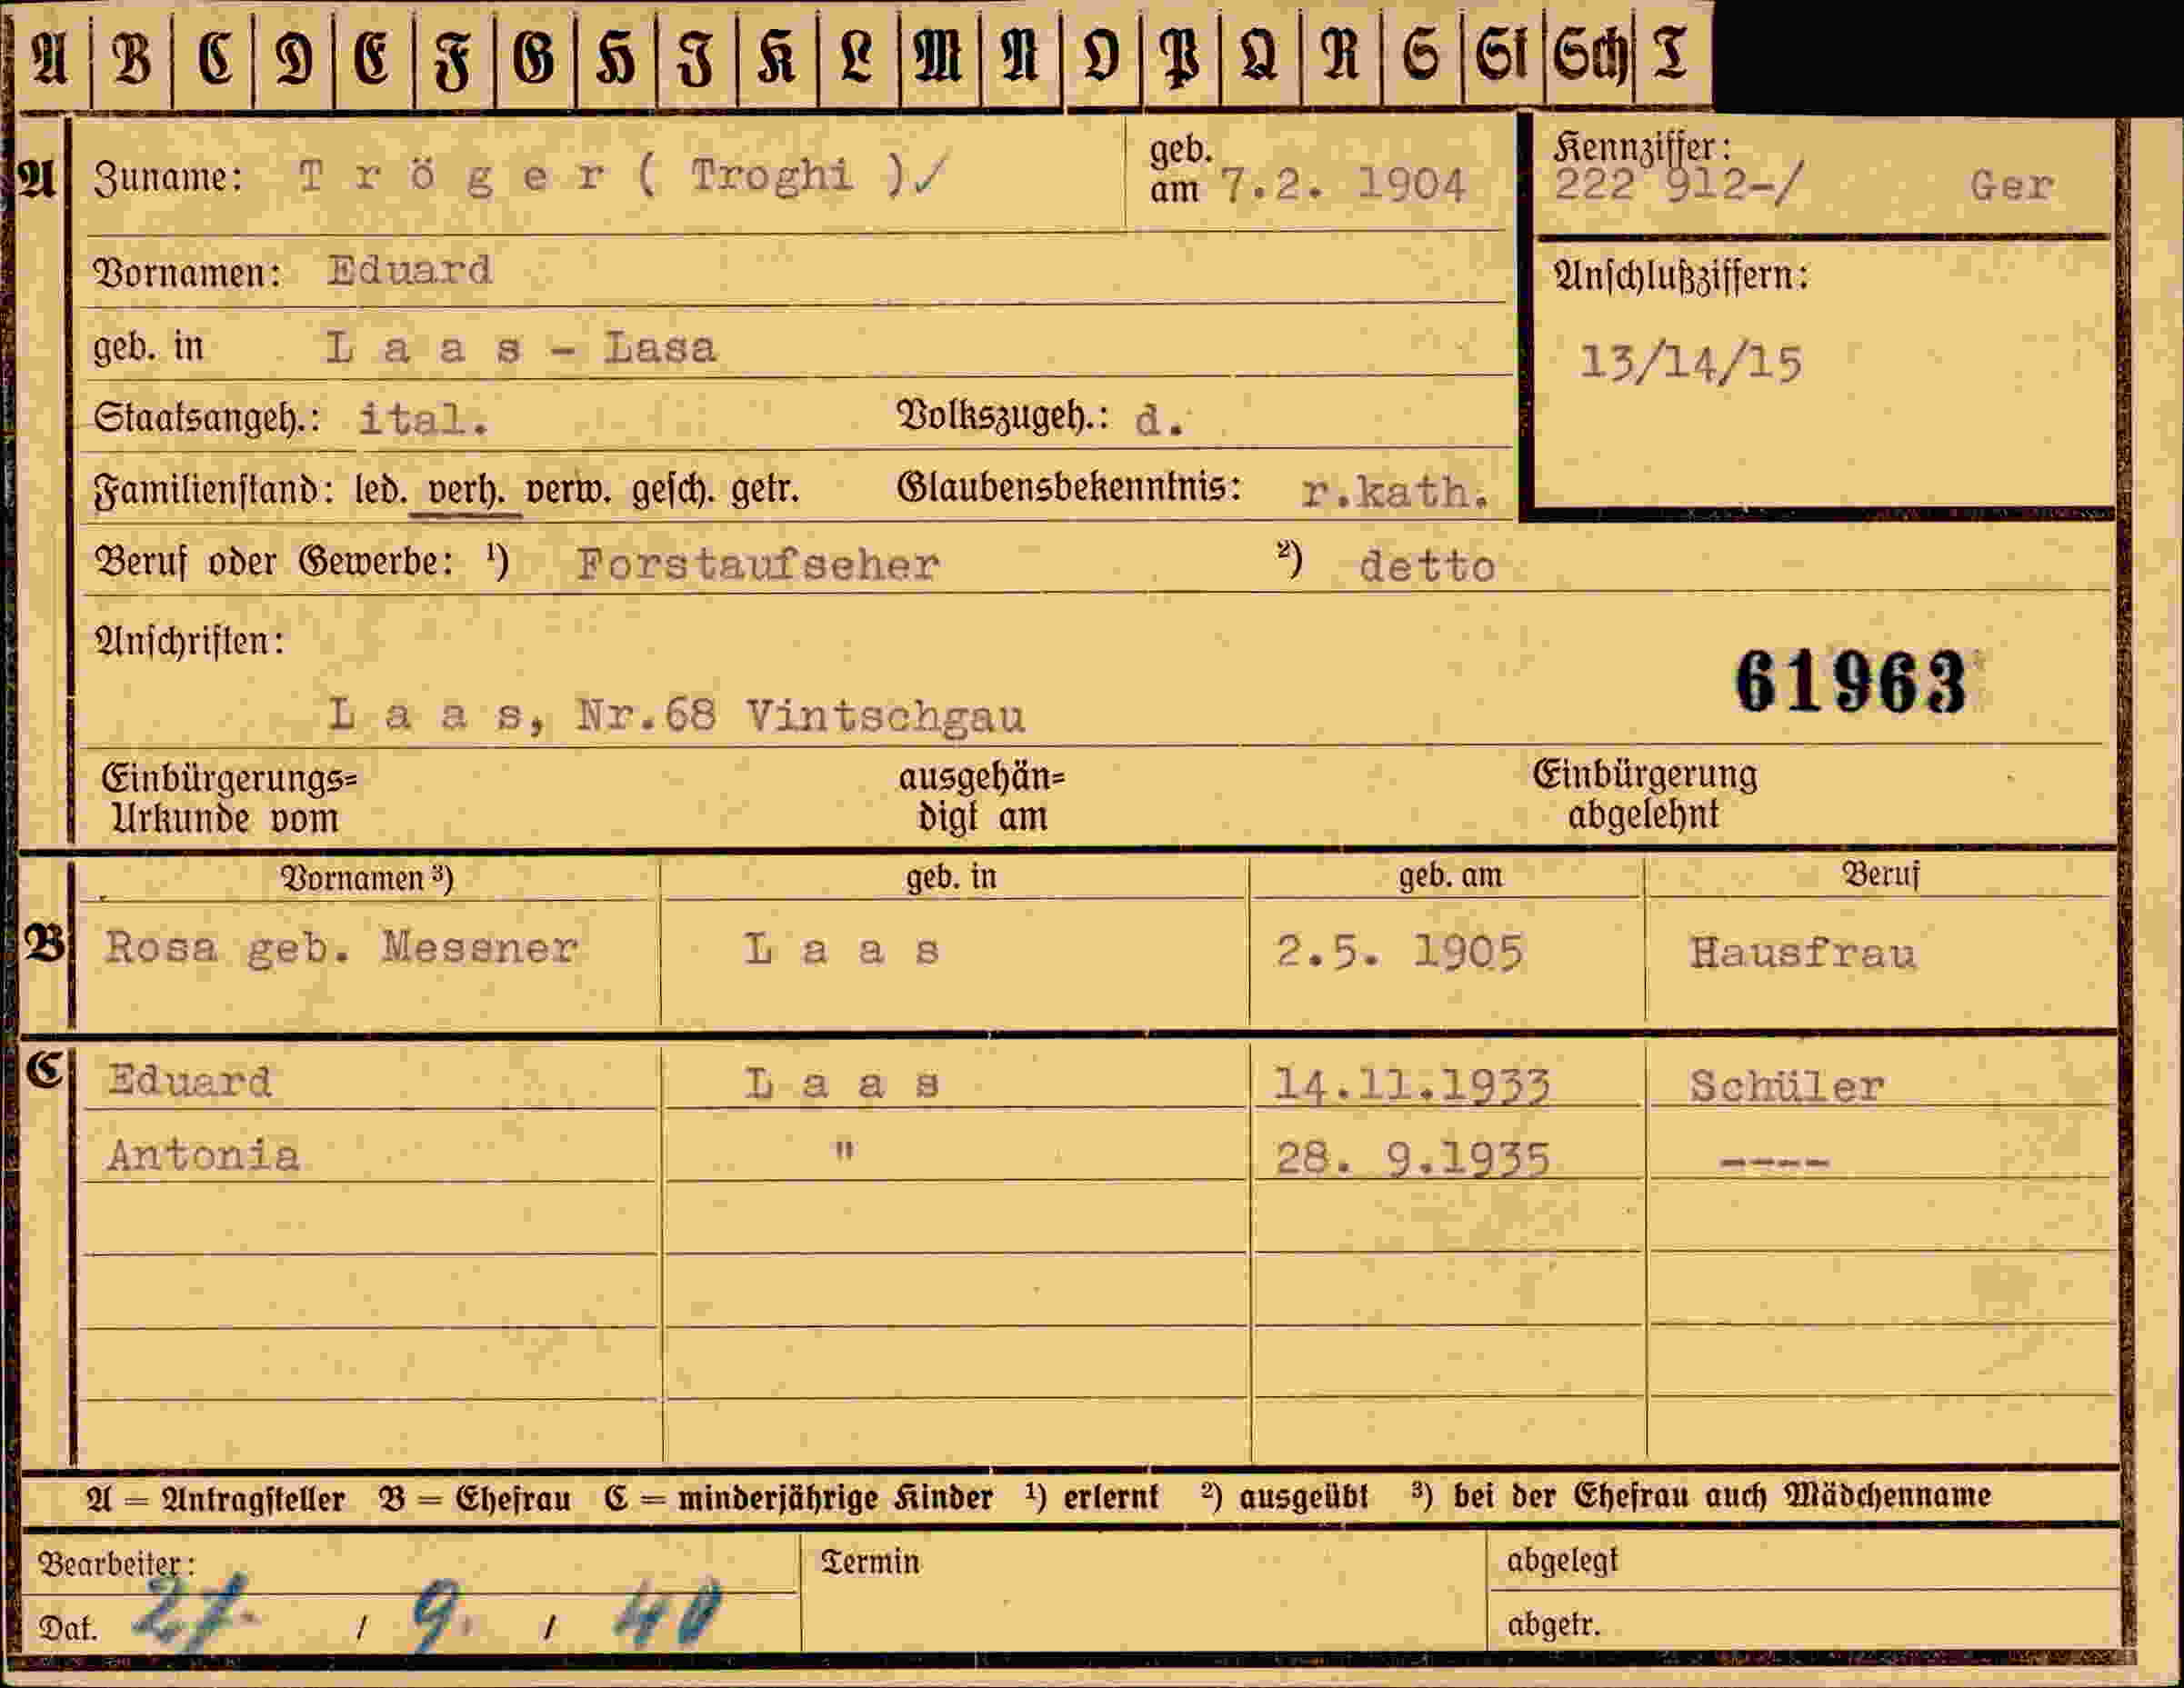 A B C D E F G H I K L M N O P Q R S St Sch T
A Zuname: T r ö g e r ( Troghi )✓ geb. am 7.2. 1904
Kennziffer:
222 912-/ Ger
Vornamen: Eduard
Anschlußziffern:
geb. in L a a s - Lasa
13/14/15
Staatsangeh.: ital. Volkszugeh.: d.
Familienstand: led. verh. verw. gesch. getr. Glaubensbekenntnis: r.kath.
Beruf oder Gewerbe: ¹) Forstaufseher ²) detto
Anschriften:
61963
L a a s, Nr.68 Vintschgau
Einbürgerungs= ausgehän= Einbürgerung
Urkunde vom digt am abgelehnt
Vornamen ³) geb. in geb. am Beruf
B Rosa geb. Messner L a a s 2.5. 1905 Hausfrau
C Eduard L a a s 14.11.1933 Schüler
Antonia " 28. 9.1935 ----
A = Antragsteller B = Ehefrau C = minderjährige Kinder ¹) erlernt ²) ausgeübt ³) bei der Ehefrau auch Mädchenname
Bearbeiter: Termin abgelegt
Dat. 27. / 9. / 40 abgetr.